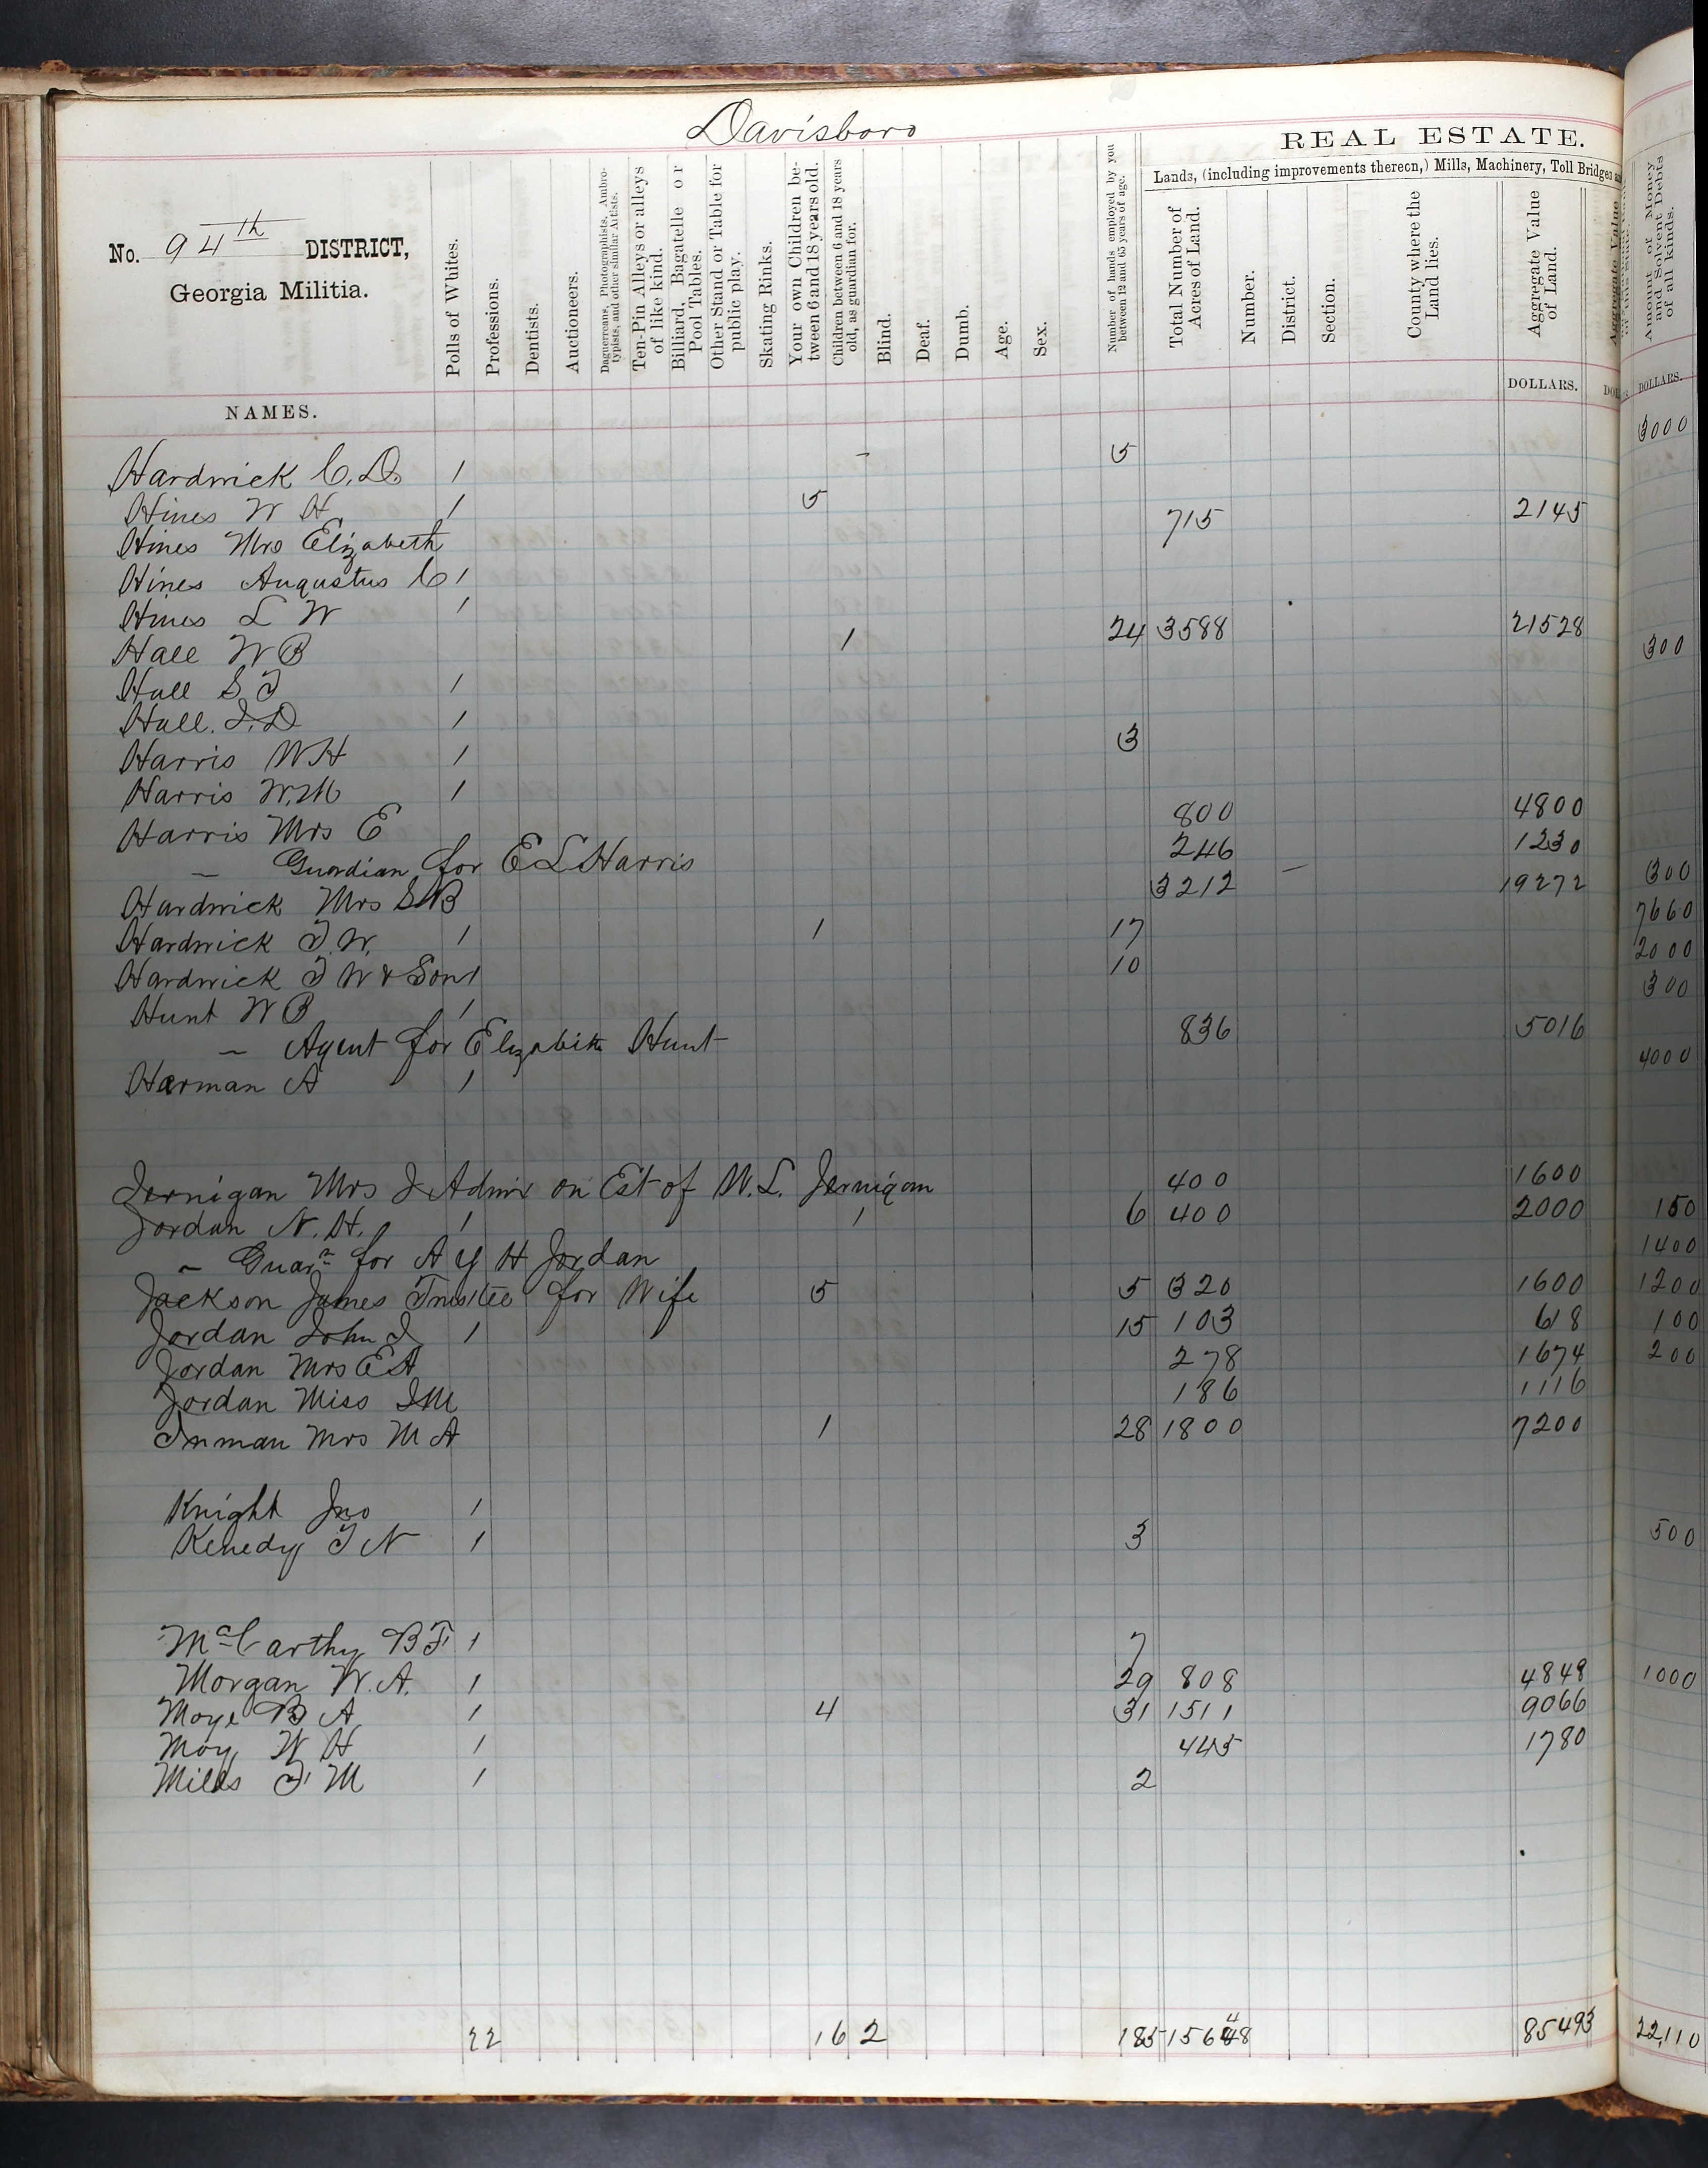 Davisboro
No. 94th DISTRICT,
Georgia Militia.
NAMES.
Polls of Whites.
Professions.
Dentists.
Auctioneers.
Daguerreans, Photographists, Ambrotypists, and other similar Artists.
Ten-Pin Alleys or alleys of like kind.
Billiard, Bagatelle or Pool Tables.
Other Stand or Table for public play.
Skating Rinks.
Your own Children between 6 and 18 years old.
Children between 6 and 18 years old, as guardian for.
Blind.
Deaf.
Dumb.
Age.
Sex.
Number of hands employed by you between 12 and 65 years of age.
REAL ESTATE.
Lands, (including improvements thereon,) Mills, Machinery, Toll Bridges
Total Number of Acres of Land.
Number.
District.
Section.
County where the Land lies.
Aggregate Value of Land.
Aggregate Value
Amount of Money and Solvent Debts of all kinds.
DOLLARS. DOLLARS.
3000
Hardwick C. D. 1 5
Hines W H 1 5 715 2145
Hines Mrs Elizabeth
Hines Augustus C 1
Hines L W 1
Hall W B 1 24 3588 21528 300
Hall S T 1
Hall. I. D 1
Harris W H 1 3
Harris W. M 1
Harris Mrs E 800 4800
— Guardian for E L Harris 246 1230
Hardwick Mrs S B 3212 19272 300
7660
Hardwick T. W. 1 1 17 2000
Hardwick T W & Son 1 10 300
Hunt W B 1
— Agent for Elizabeth Hunt 836 5016
4000
Harman A 1
Jernigan Mrs J Admx on Est of W. L. Jernigan 400 1600
Jordan N. H. 1 1 6 400 2000 150
— Guarn for A Y H Jordan 1400
Jackson James Trustee for Wife 1 5 5 320 1600 1200
Jordan John J 1 15 103 618 100
Jordan Mrs E A 278 1674 200
Jordan Miss I M 186 1116
Inman Mrs M A 1 28 1800 7200
Knight Jno 1
Kenedy T N 1 3 500
McCarthy B F 1 7
Morgan W. A. 1 29 808 4848 1000
Moye B A 1 4 31 1511 9066
Moy W H 1 445 1780
Milds F M 1 2
22 16 2 185 15648 85493 22,110